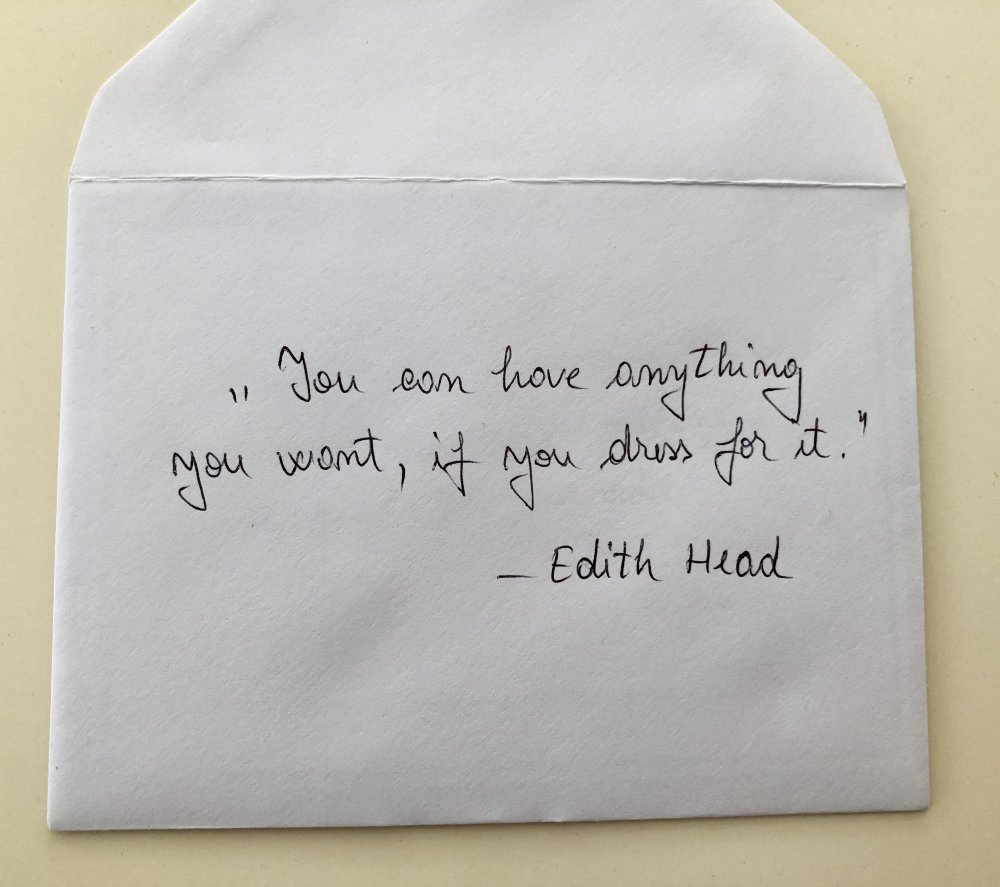 „You can have anything
you want, if you dress for it.”
– Edith Head